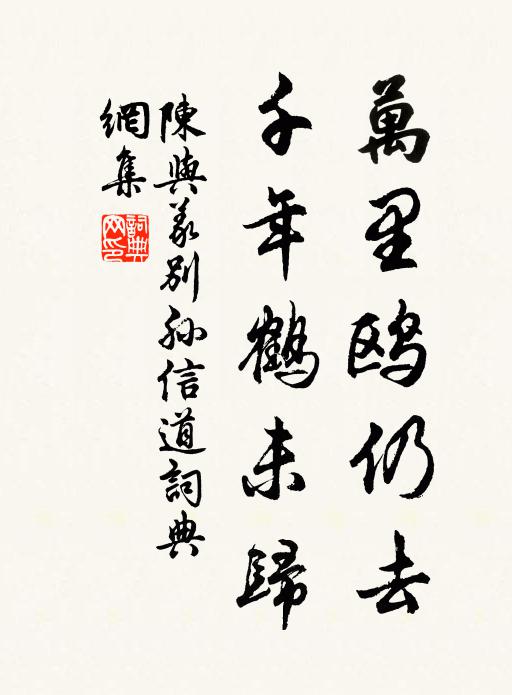 萬里鷗仍去
千年鶴未歸
陳與義別孫信道詞典
網集
詞典
网印